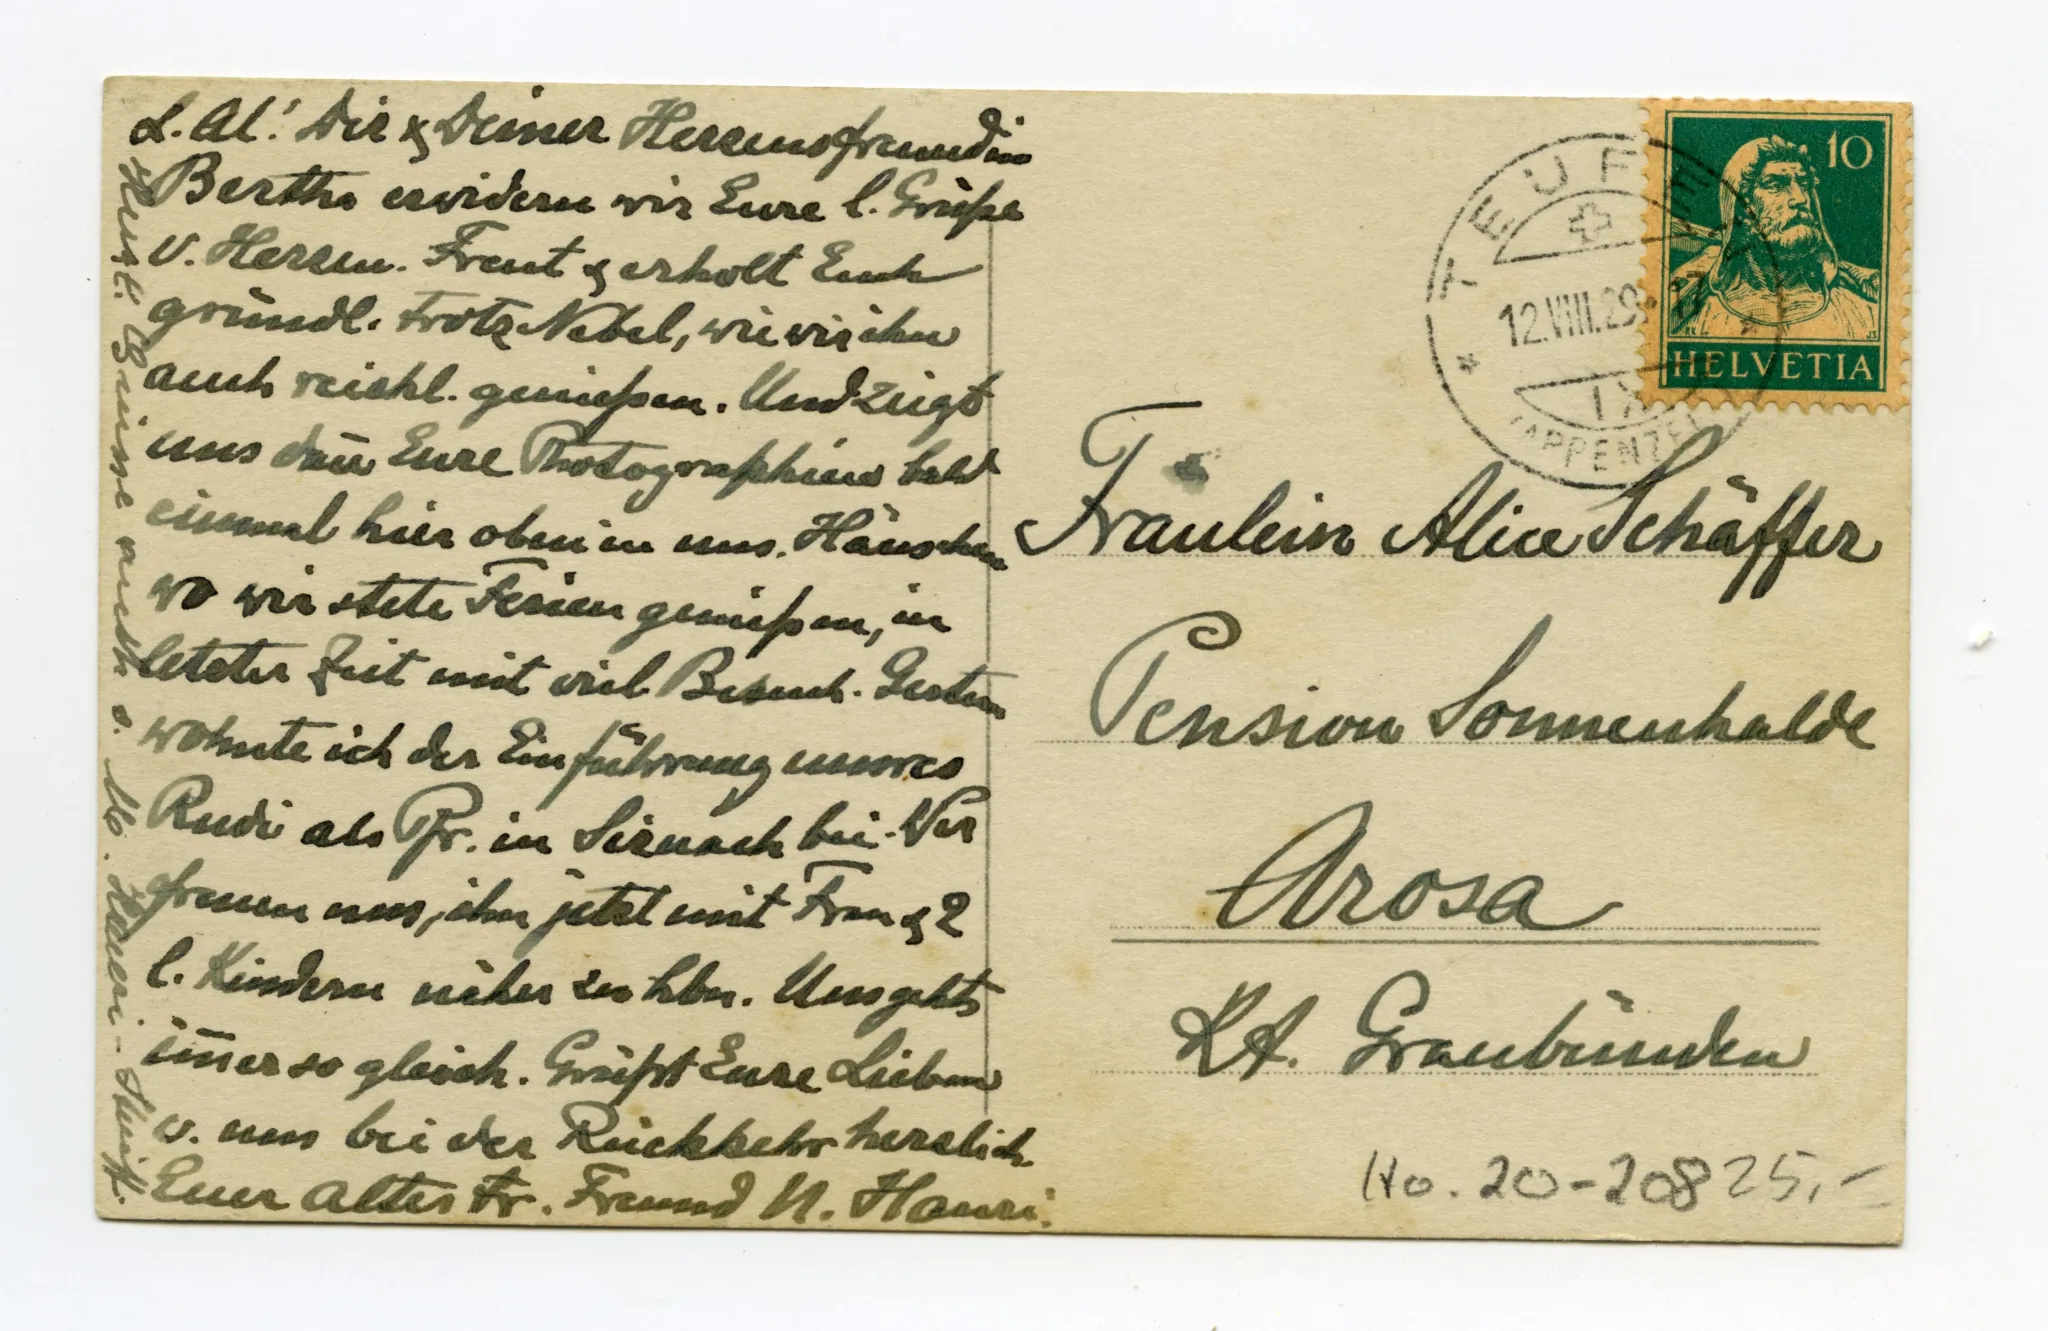 L. Al.! Dir & Deiner Herzensfreundin
Bertha erwidern wir Eure l. Grüße
v. Herzen. Freut & erholt Euch
gründl. trotz Nebel, wie wir ihn
auch reichl. genießen. Und zeigt
uns dañ Eure Photographien bald
einmal hier oben in uns. Häuschen
wo wir stete Ferien genießen, in
letzter Zeit mit viel Besuch. Gestern
wohnte ich der Einführung unseres
Rudi als Pfr. in Sirnach bei. Wir
freuen uns, ihn jetzt mit Frau & 2
l. Kindern näher zu hbn. Uns gehts
im̄er so gleich. Grüßt Eure Lieben
v. uns bei der Rückkehr herzlich.
Euer alter tr. Freund U. Hauri.
Herzl. Grüsse auch v.
Hauri
TEUFEN
12.VIII.29
(APPENZELL
10
HELVETIA
Fräulein Alice Schäffer
Pension Sonnenhalde
Arosa
Kt. Graubünden
Ho. 20-208 25,-